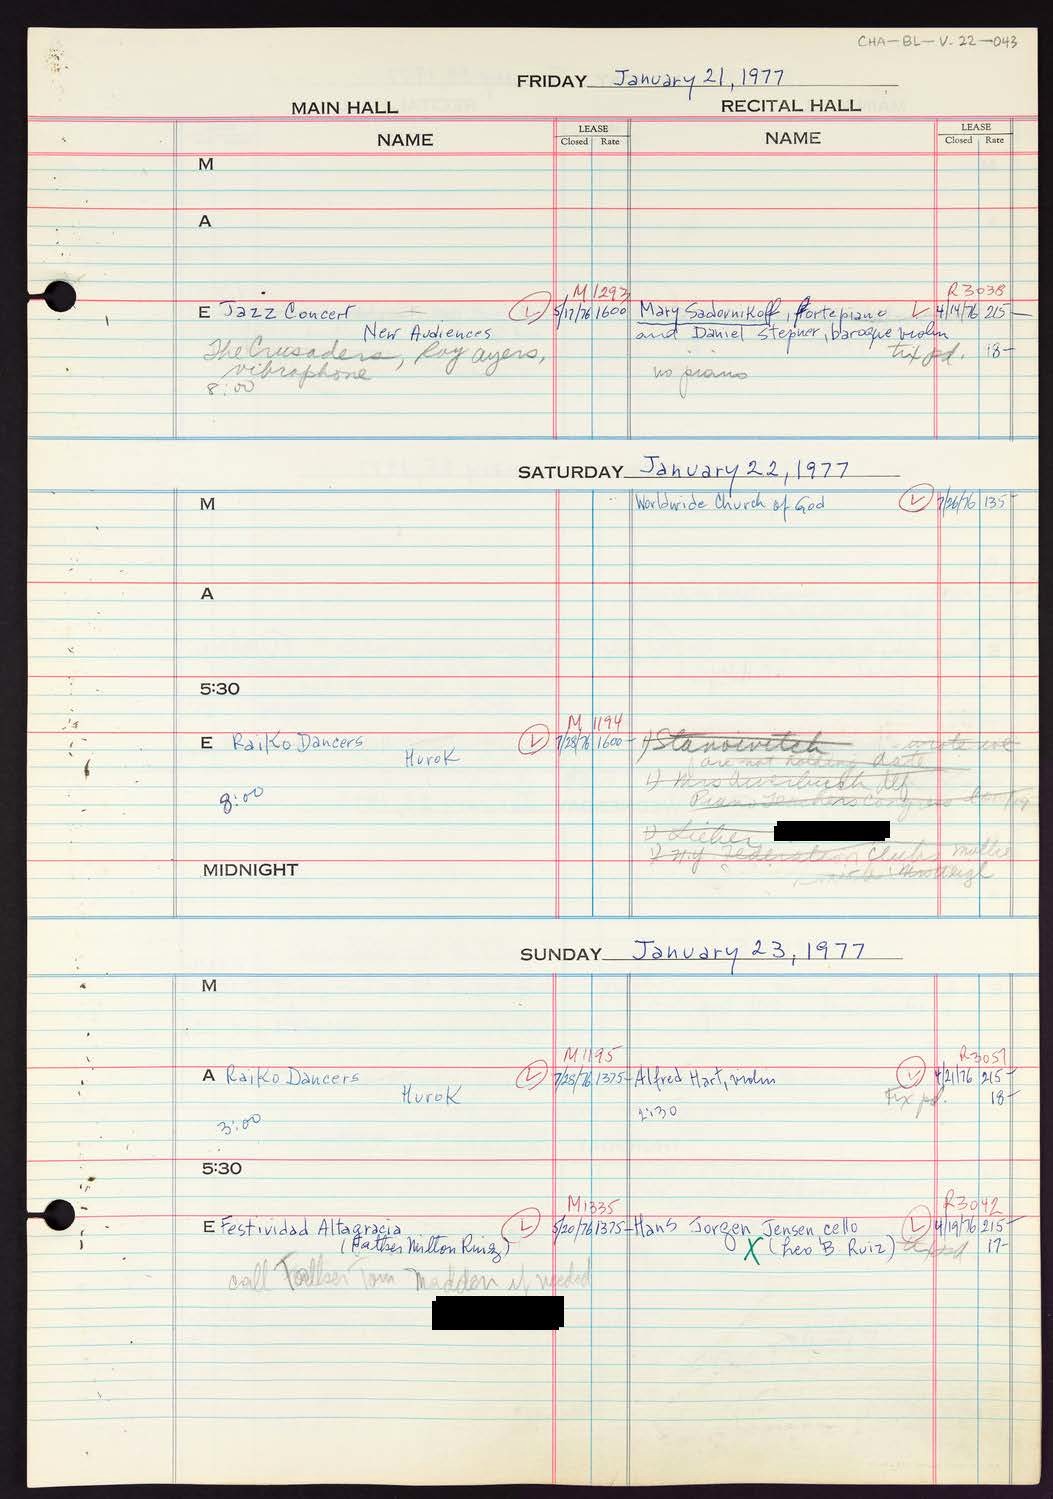 CHA-BL-V. 22-043
FRIDAY January 21, 1977
MAIN HALL RECITAL HALL
NAME LEASE Closed Rate NAME LEASE Closed Rate
M
A
M 1293 R3038
E Jazz Concert 5/17/76 1600 Mary Sadovnikoff, fortepiano 4/14/76 215-
New Audiences and Daniel Stepner, baroque violin
The Crusaders, Roy ayers, tix pd. 18-
vibraphone no piano
8:00
SATURDAY January 22, 1977
M Worldwide Church of God 7/26/76 135-
A
5:30
M 1194
E Raiko Dancers 7/28/76 1600- 1) Stanoievitch wrote we
Hurok are not holding date
8:00 Piano Teachers Congress
1) Lieber
1) N.Y Federation Clubs Mollie
MIDNIGHT
SUNDAY January 23, 1977
M
M1195 R3051
A Raiko Dancers 7/28/76 1375- Alfred Hart, violin 4/21/76 215-
Hurok Tix pd. 18-
3:00 2:30
5:30
M1335 R3042
E Festividad Altagracia 5/20/76 1375- Hans Jorgen Jensen cello 4/19/76 215-
(Father Milton Ruiz) X (Leo B. Ruiz) tix pd 17-
call Father Tom Madden if needed